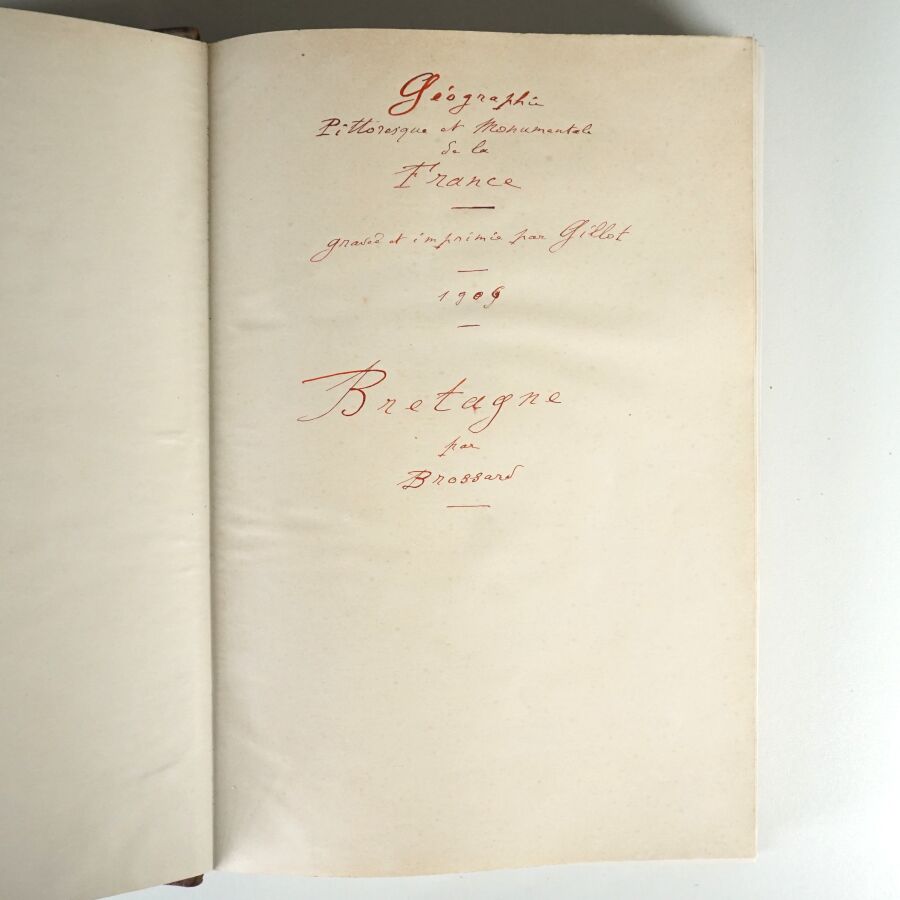 Géographie
Pittoresque et Monumentale
de la
France
gravée et imprimée par Gillot
1909
Bretagne
par
Brossard